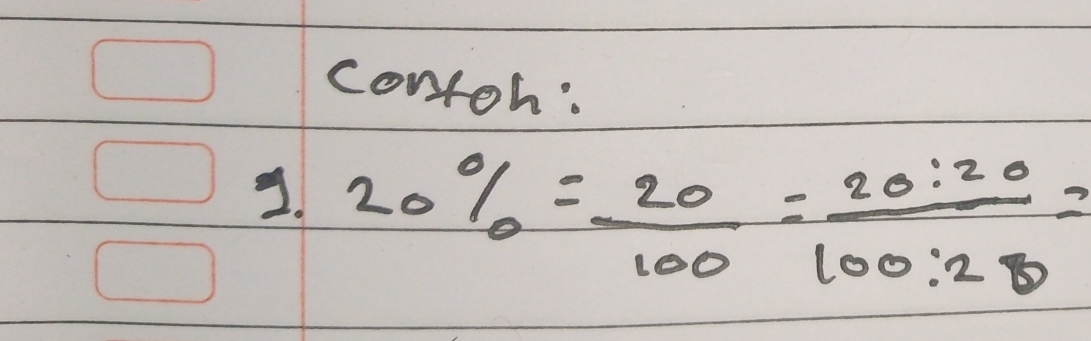 Contoh:
1. 20% = 20/100 = 20:20/100:20 =